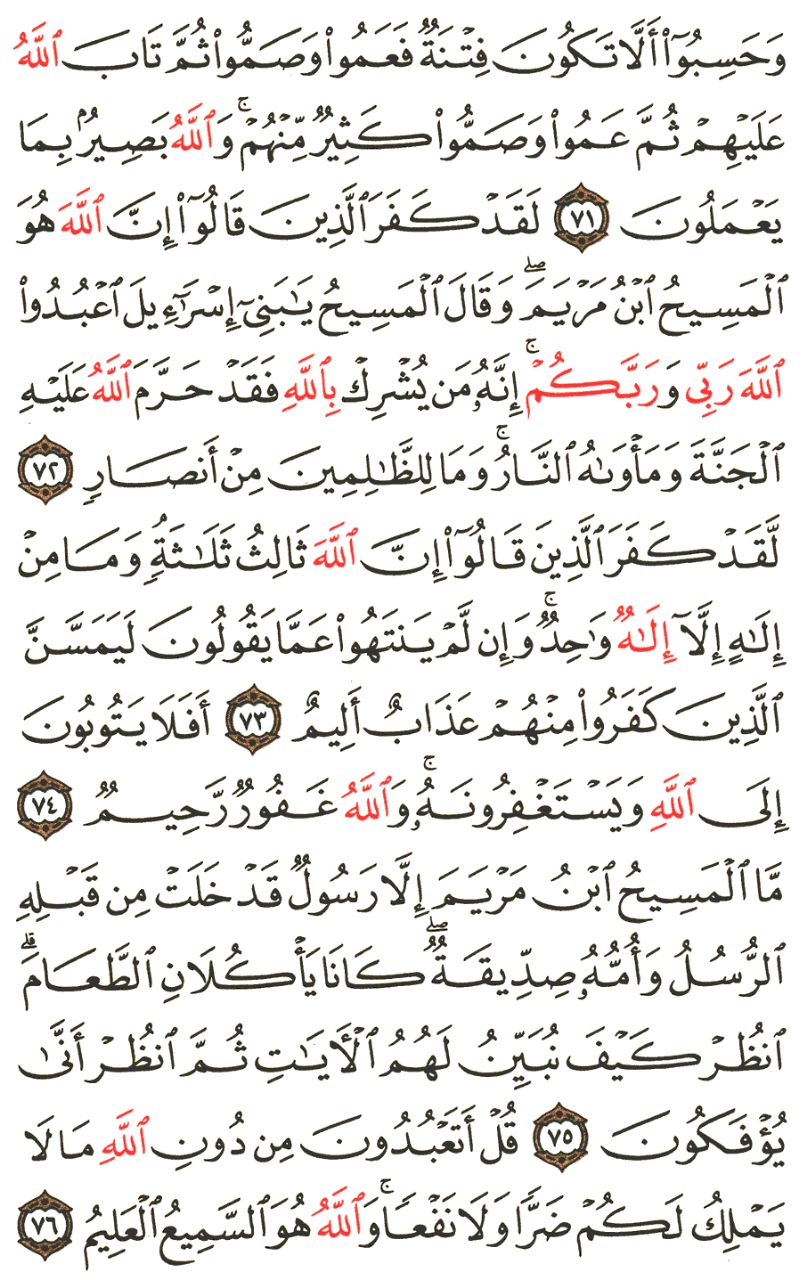 وَحَسِبُوٓا۟ أَلَّا تَكُونَ فِتْنَةٌ فَعَمُوا۟ وَصَمُّوا۟ ثُمَّ تَابَ ٱللَّهُ
عَلَيْهِمْ ثُمَّ عَمُوا۟ وَصَمُّوا۟ كَثِيرٌ مِّنْهُمْ ۚ وَٱللَّهُ بَصِيرٌۢ بِمَا
يَعْمَلُونَ ٧١ لَقَدْ كَفَرَ ٱلَّذِينَ قَالُوٓا۟ إِنَّ ٱللَّهَ هُوَ
ٱلْمَسِيحُ ٱبْنُ مَرْيَمَ ۖ وَقَالَ ٱلْمَسِيحُ يَـٰبَنِىٓ إِسْرَٰٓءِيلَ ٱعْبُدُوا۟
ٱللَّهَ رَبِّى وَرَبَّكُمْ ۚ إِنَّهُۥ مَن يُشْرِكْ بِٱللَّهِ فَقَدْ حَرَّمَ ٱللَّهُ عَلَيْهِ
ٱلْجَنَّةَ وَمَأْوَىٰهُ ٱلنَّارُ ۚ وَمَا لِلظَّـٰلِمِينَ مِنْ أَنصَارٍ ٧٢
لَّقَدْ كَفَرَ ٱلَّذِينَ قَالُوٓا۟ إِنَّ ٱللَّهَ ثَالِثُ ثَلَـٰثَةٍ ۘ وَمَا مِنْ
إِلَـٰهٍ إِلَّآ إِلَـٰهٌ وَٰحِدٌ ۚ وَإِن لَّمْ يَنتَهُوا۟ عَمَّا يَقُولُونَ لَيَمَسَّنَّ
ٱلَّذِينَ كَفَرُوا۟ مِنْهُمْ عَذَابٌ أَلِيمٌ ٧٣ أَفَلَا يَتُوبُونَ
إِلَى ٱللَّهِ وَيَسْتَغْفِرُونَهُۥ ۚ وَٱللَّهُ غَفُورٌ رَّحِيمٌ ٧٤
مَّا ٱلْمَسِيحُ ٱبْنُ مَرْيَمَ إِلَّا رَسُولٌ قَدْ خَلَتْ مِن قَبْلِهِ
ٱلرُّسُلُ وَأُمُّهُۥ صِدِّيقَةٌ ۖ كَانَا يَأْكُلَانِ ٱلطَّعَامَ ۗ
ٱنظُرْ كَيْفَ نُبَيِّنُ لَهُمُ ٱلْـَٔايَـٰتِ ثُمَّ ٱنظُرْ أَنَّىٰ
يُؤْفَكُونَ ٧٥ قُلْ أَتَعْبُدُونَ مِن دُونِ ٱللَّهِ مَا لَا
يَمْلِكُ لَكُمْ ضَرًّا وَلَا نَفْعًا ۚ وَٱللَّهُ هُوَ ٱلسَّمِيعُ ٱلْعَلِيمُ ٧٦